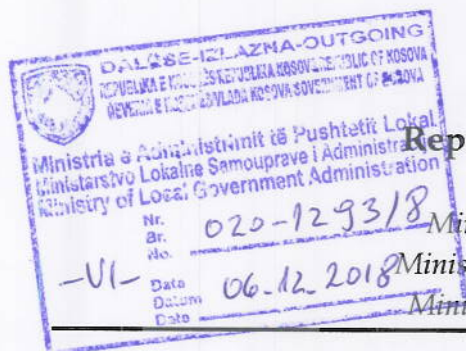 DALËSE-IZLAZNA-OUTGOING
REPUBLIKA E KOSOVËS REPUBLIKA KOSOVA REPUBLIC OF KOSOVA
QEVERIA E KOSOVËS VLADA KOSOVA GOVERNMENT OF KOSOVA
Ministria e Administrimit të Pushtetit Lokal
Ministarstvo Lokalne Samouprave i Administra
Ministry of Local Government Administration
Rep
Nr.
Br.
No.
020-1293/8
Min
-VI-
Data
Datum
Date
06.12.2018
Minis
Minis